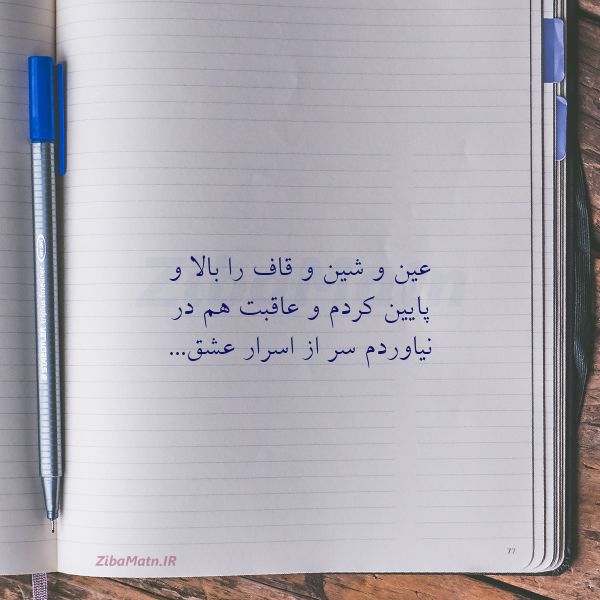 عین و شین و قاف را بالا و
پایین کردم و عاقبت هم در
نیاوردم سر از اسرار عشق...
ZibaMatn.IR
77